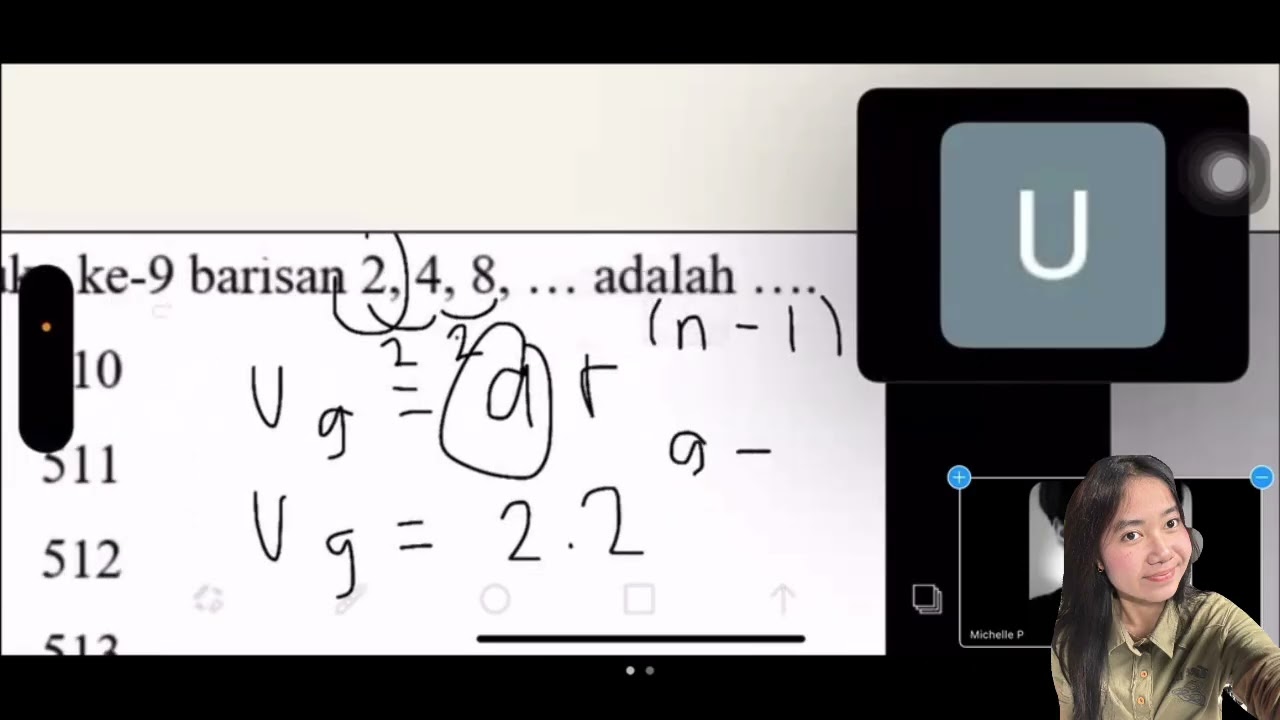 ke-9 barisan 2, 4, 8, … adalah ….
10
511
512
513
2 2
U9 = a r (n - 1)
9 -
U9 = 2.2
U
Michelle P